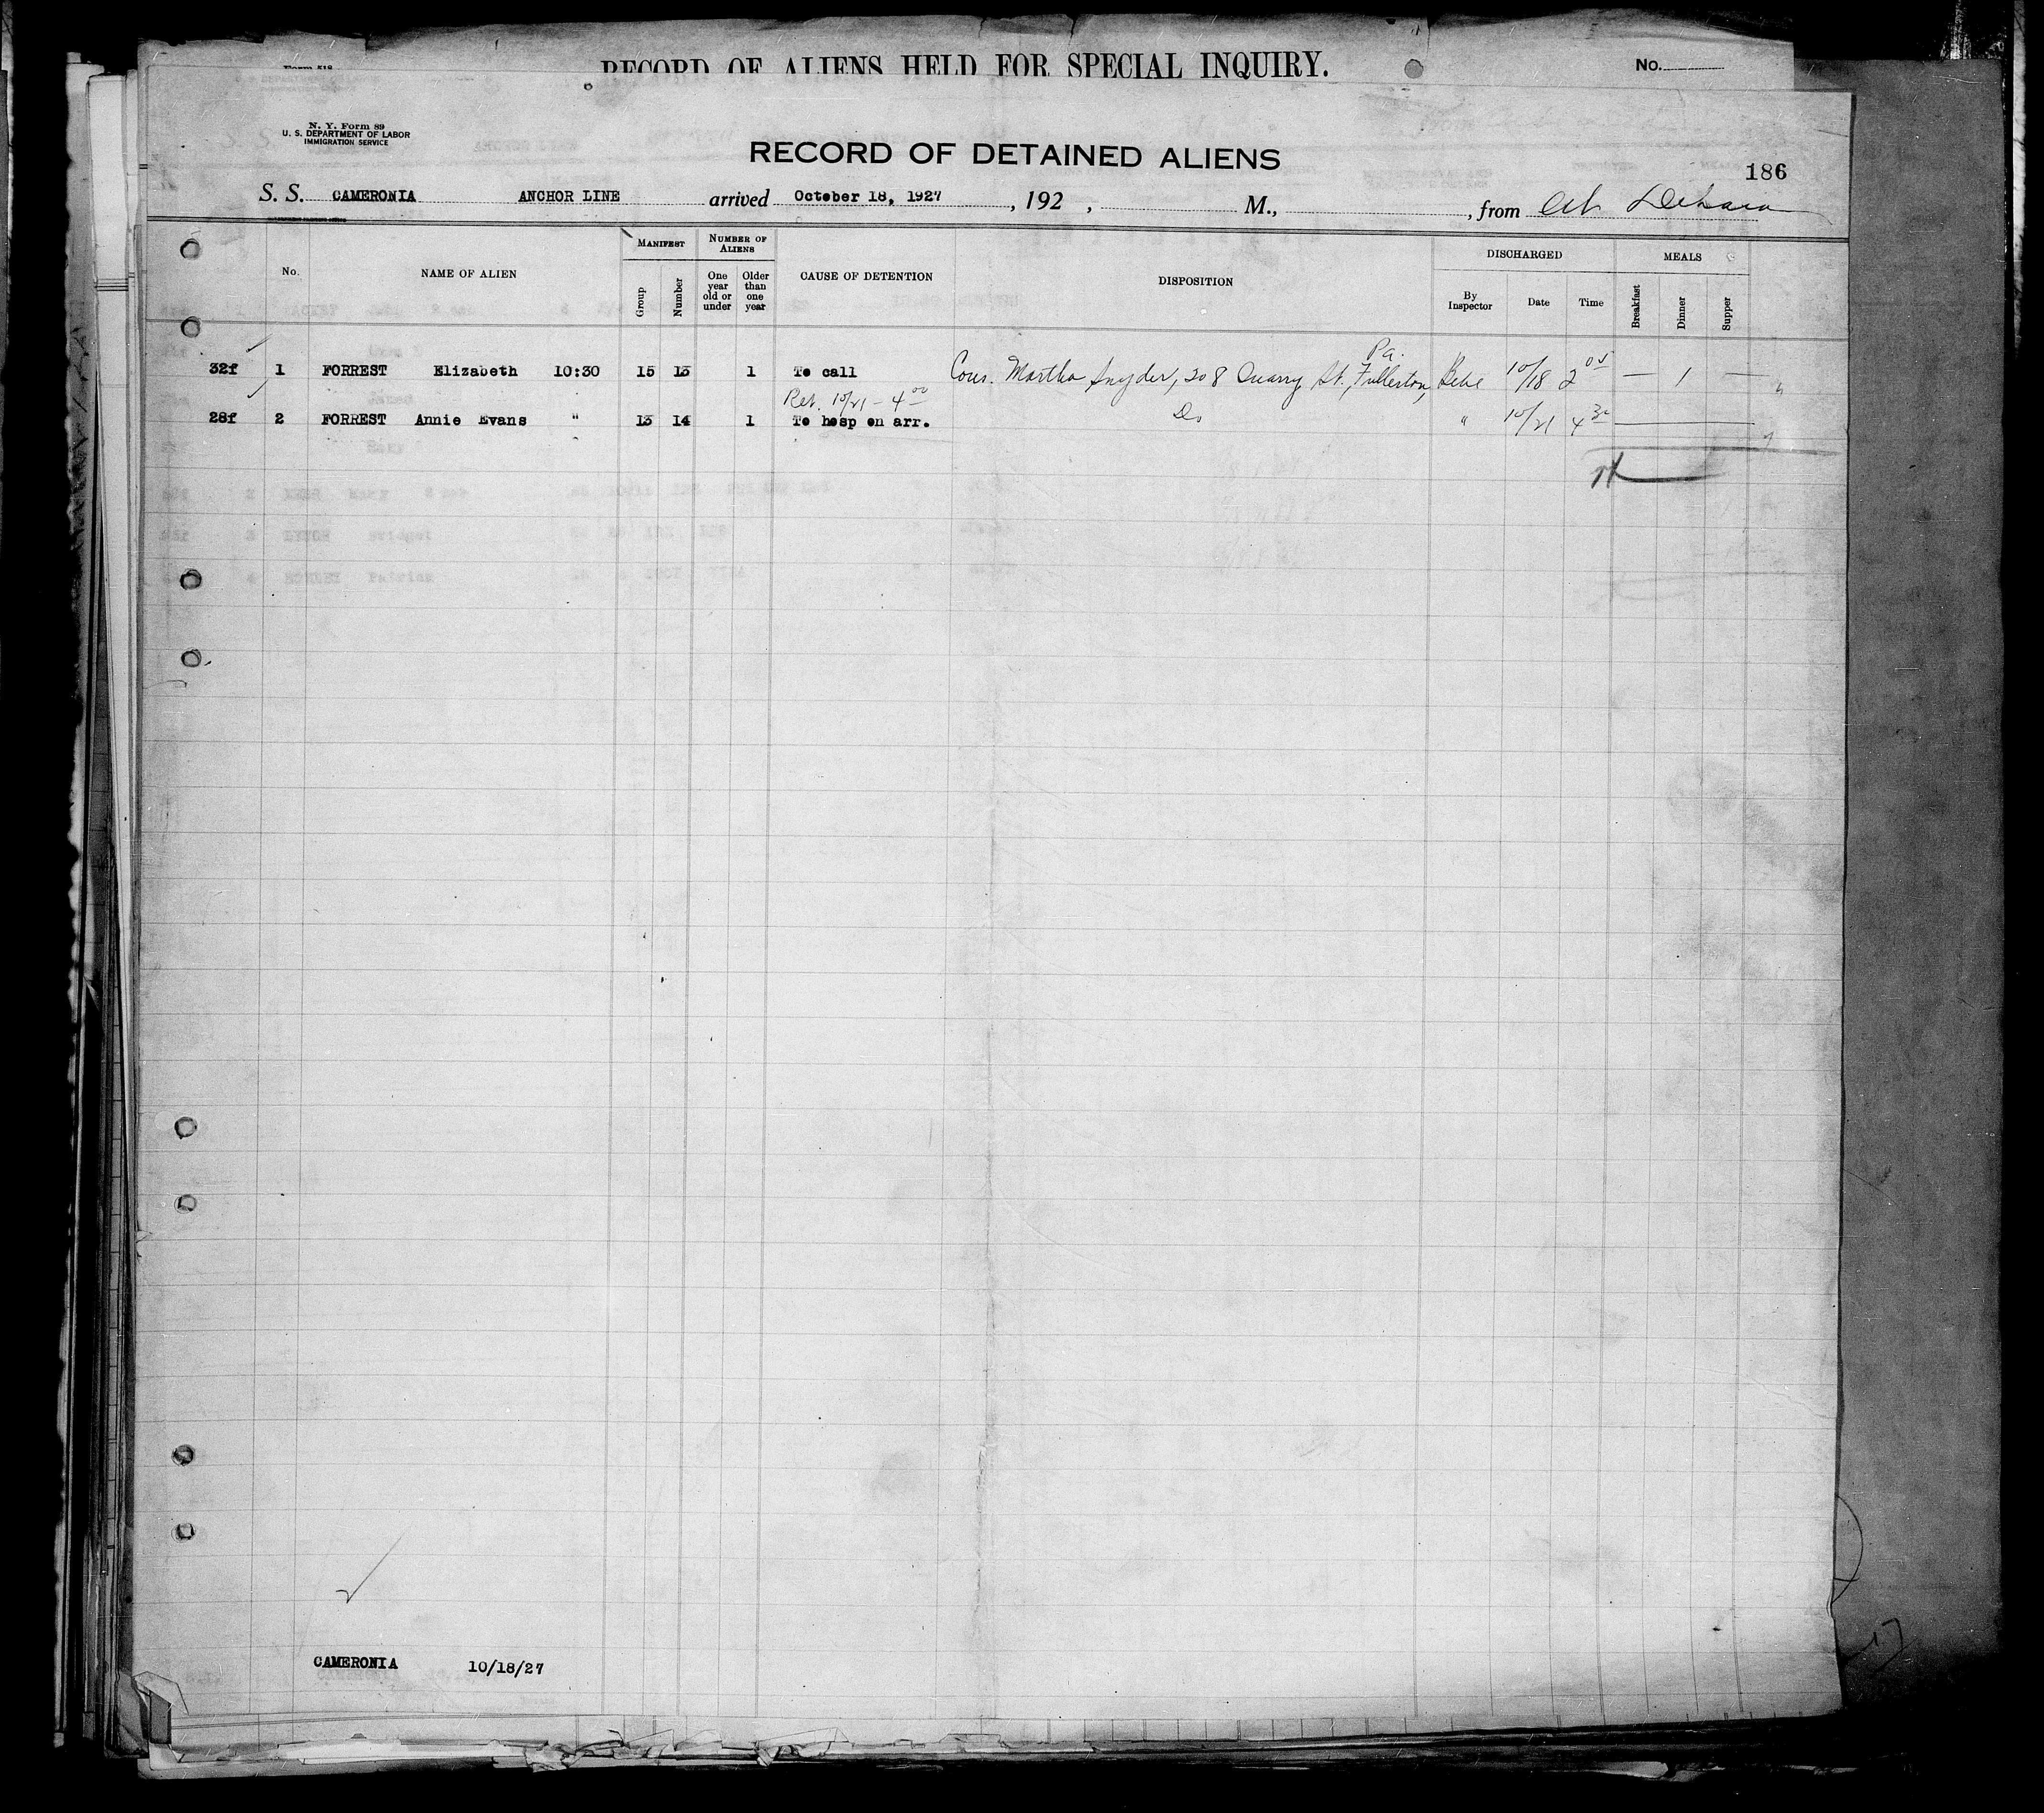 RECORD OF ALIENS HELD FOR SPECIAL INQUIRY.
No.
N. Y. Form 89
U. S. DEPARTMENT OF LABOR
IMMIGRATION SERVICE
RECORD OF DETAINED ALIENS
186
S. S. CAMERONIA ANCHOR LINE arrived October 18, 1927, 192 , M., , from
MANIFEST NUMBER OF ALIENS DISCHARGED MEALS
No. NAME OF ALIEN Group Number One year old or under Older than one year CAUSE OF DETENTION DISPOSITION By Inspector Date Time Breakfast Dinner Supper
Pa.
32f 1 FORREST Elizabeth 10:30 15 13 1 To call Cous. Martha Snyder, 208 Quarry St. Fullerton, 10/18 2 05 — 1 —
Ret. 10/21 - 4 00
28f 2 FORREST Annie Evans " 13 14 1 To hosp on arr. Do " 10/21 4 30
CAMERONIA 10/18/27